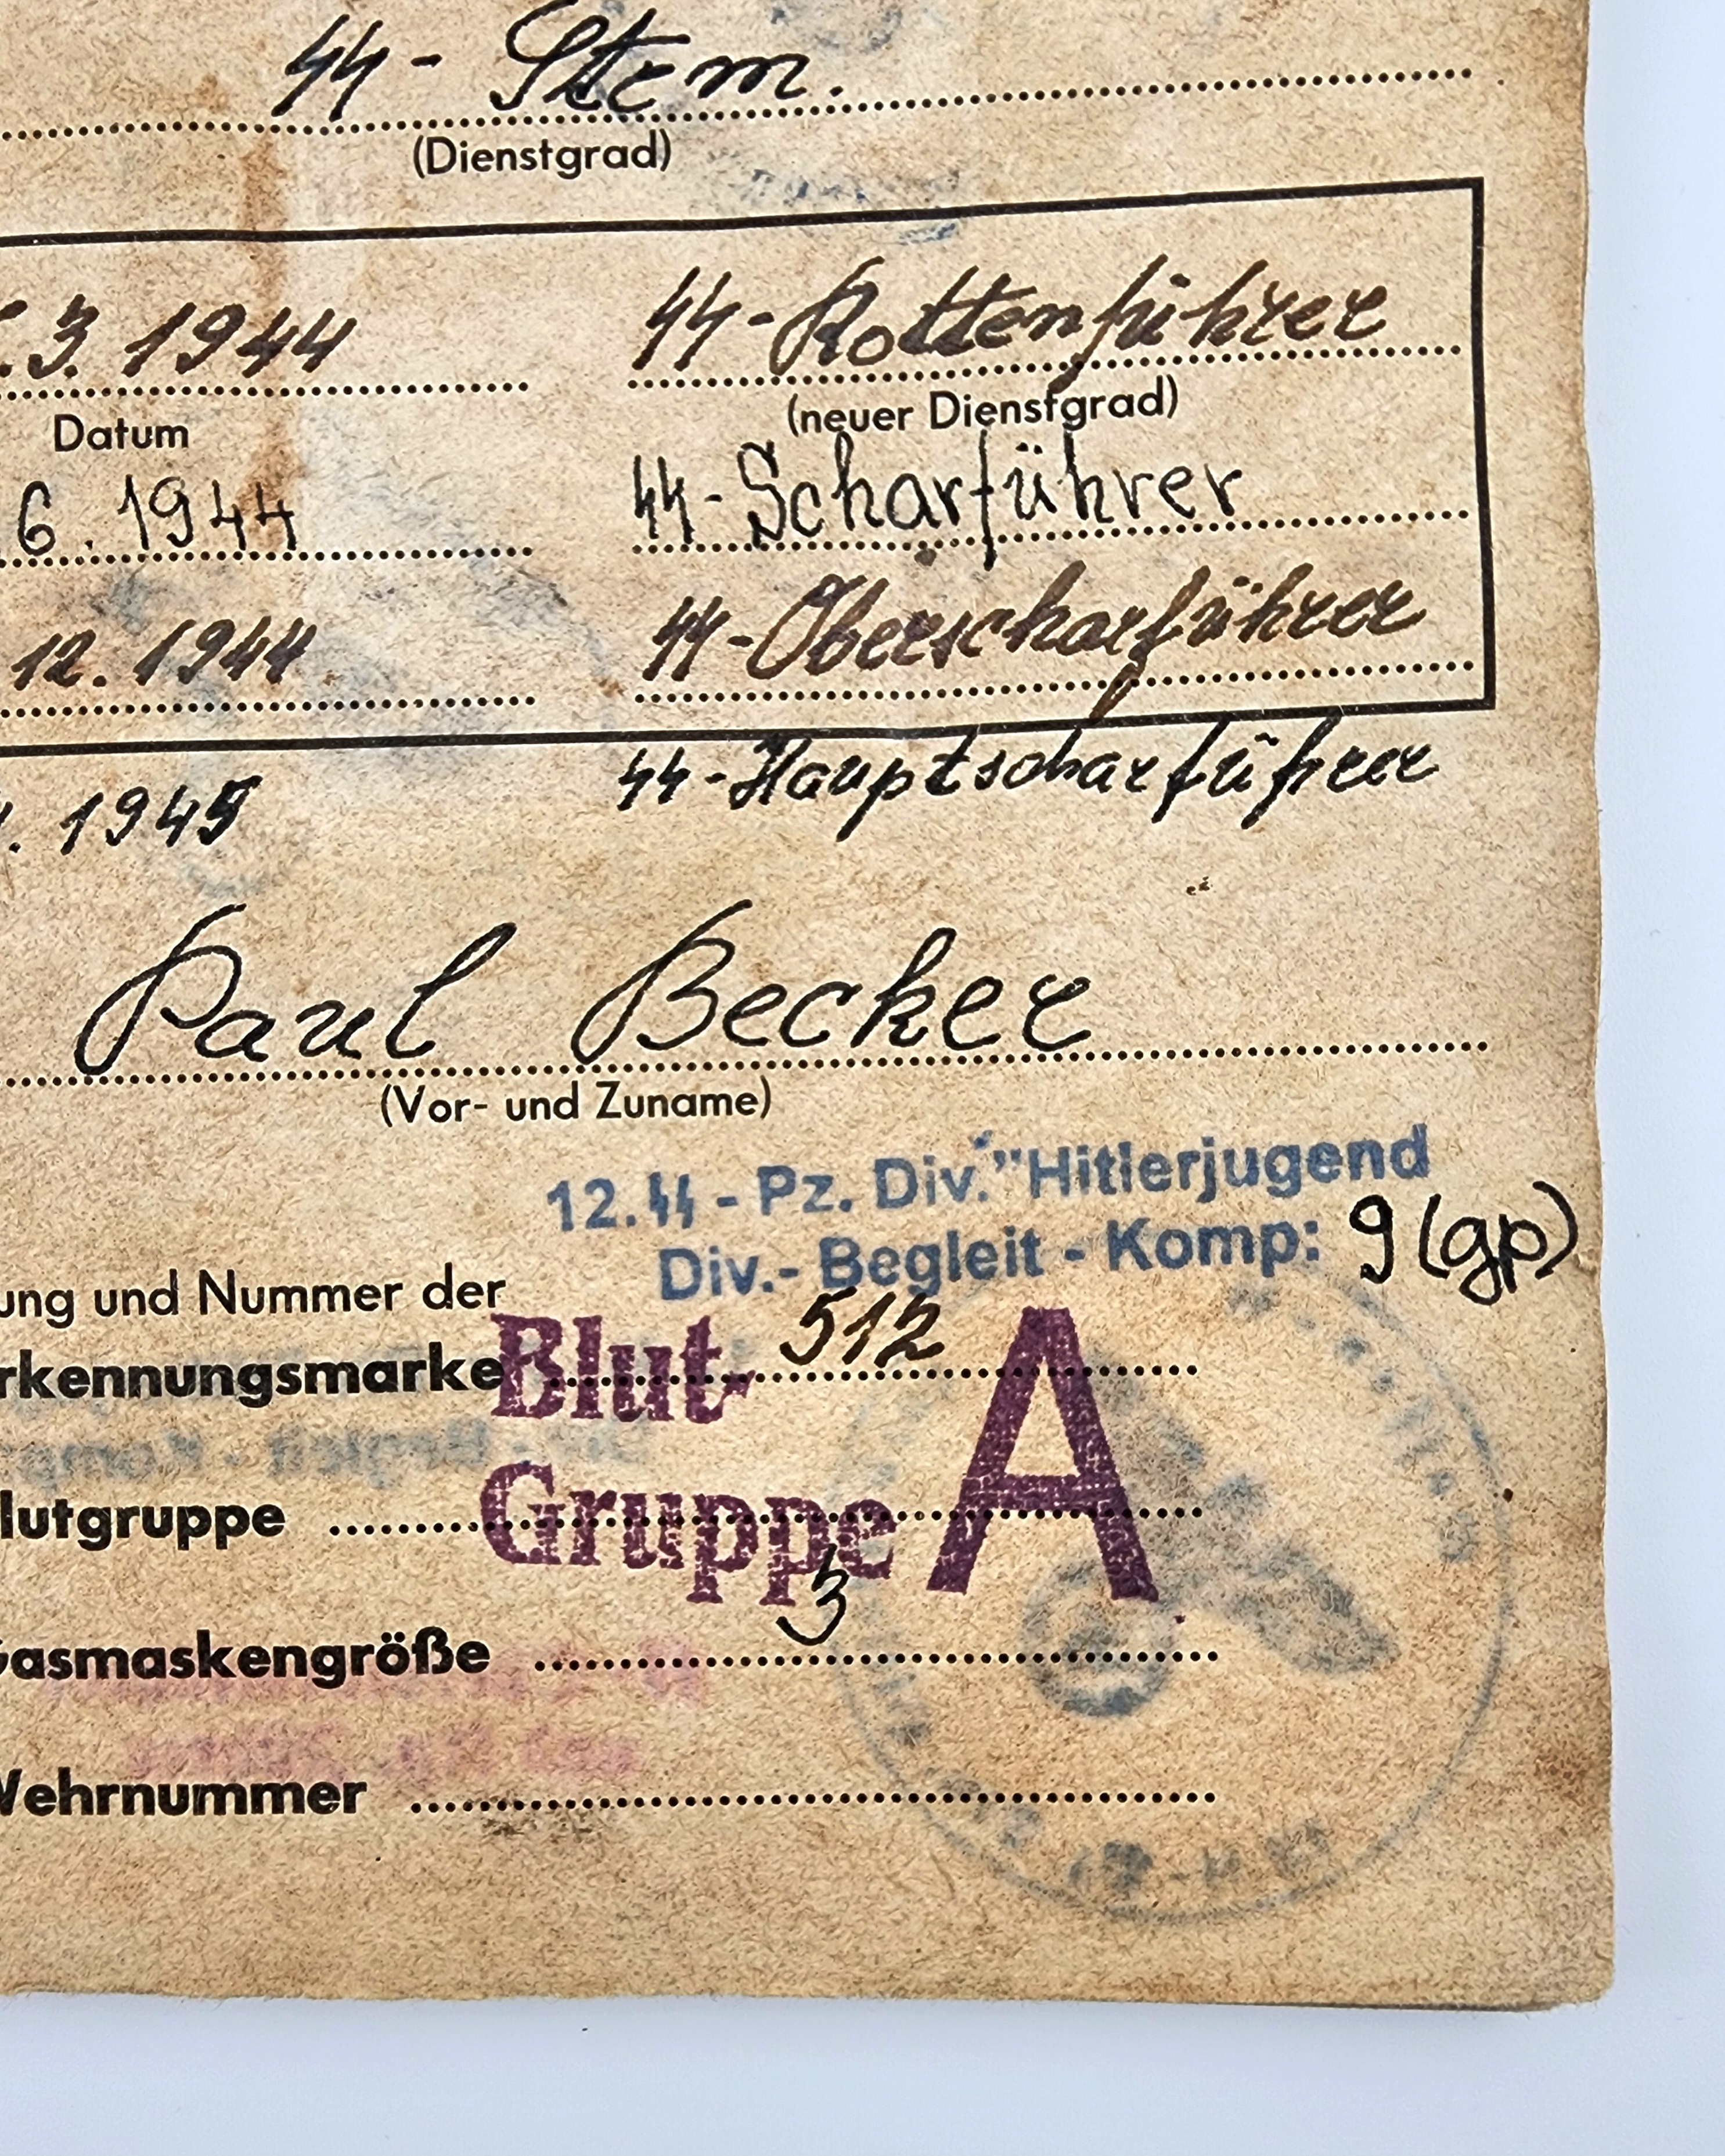 ᛋᛋ - Stcm.
(Dienstgrad)
.3. 1944 ᛋᛋ-Rottenführer
Datum (neuer Dienstgrad)
6. 1944 ᛋᛋ-Scharführer
12. 1944 ᛋᛋ-Oberscharführer
. 1945 ᛋᛋ-Hauptscharführer
Paul Becker
(Vor- und Zuname)
12.ᛋᛋ - Pz. Div."Hitlerjugend
Div.- Begleit - Komp: 9 (gp)
ung und Nummer der
rkennungsmarke 512
Blut-
lutgruppe Gruppe A
asmaskengröße 3
Wehrnummer